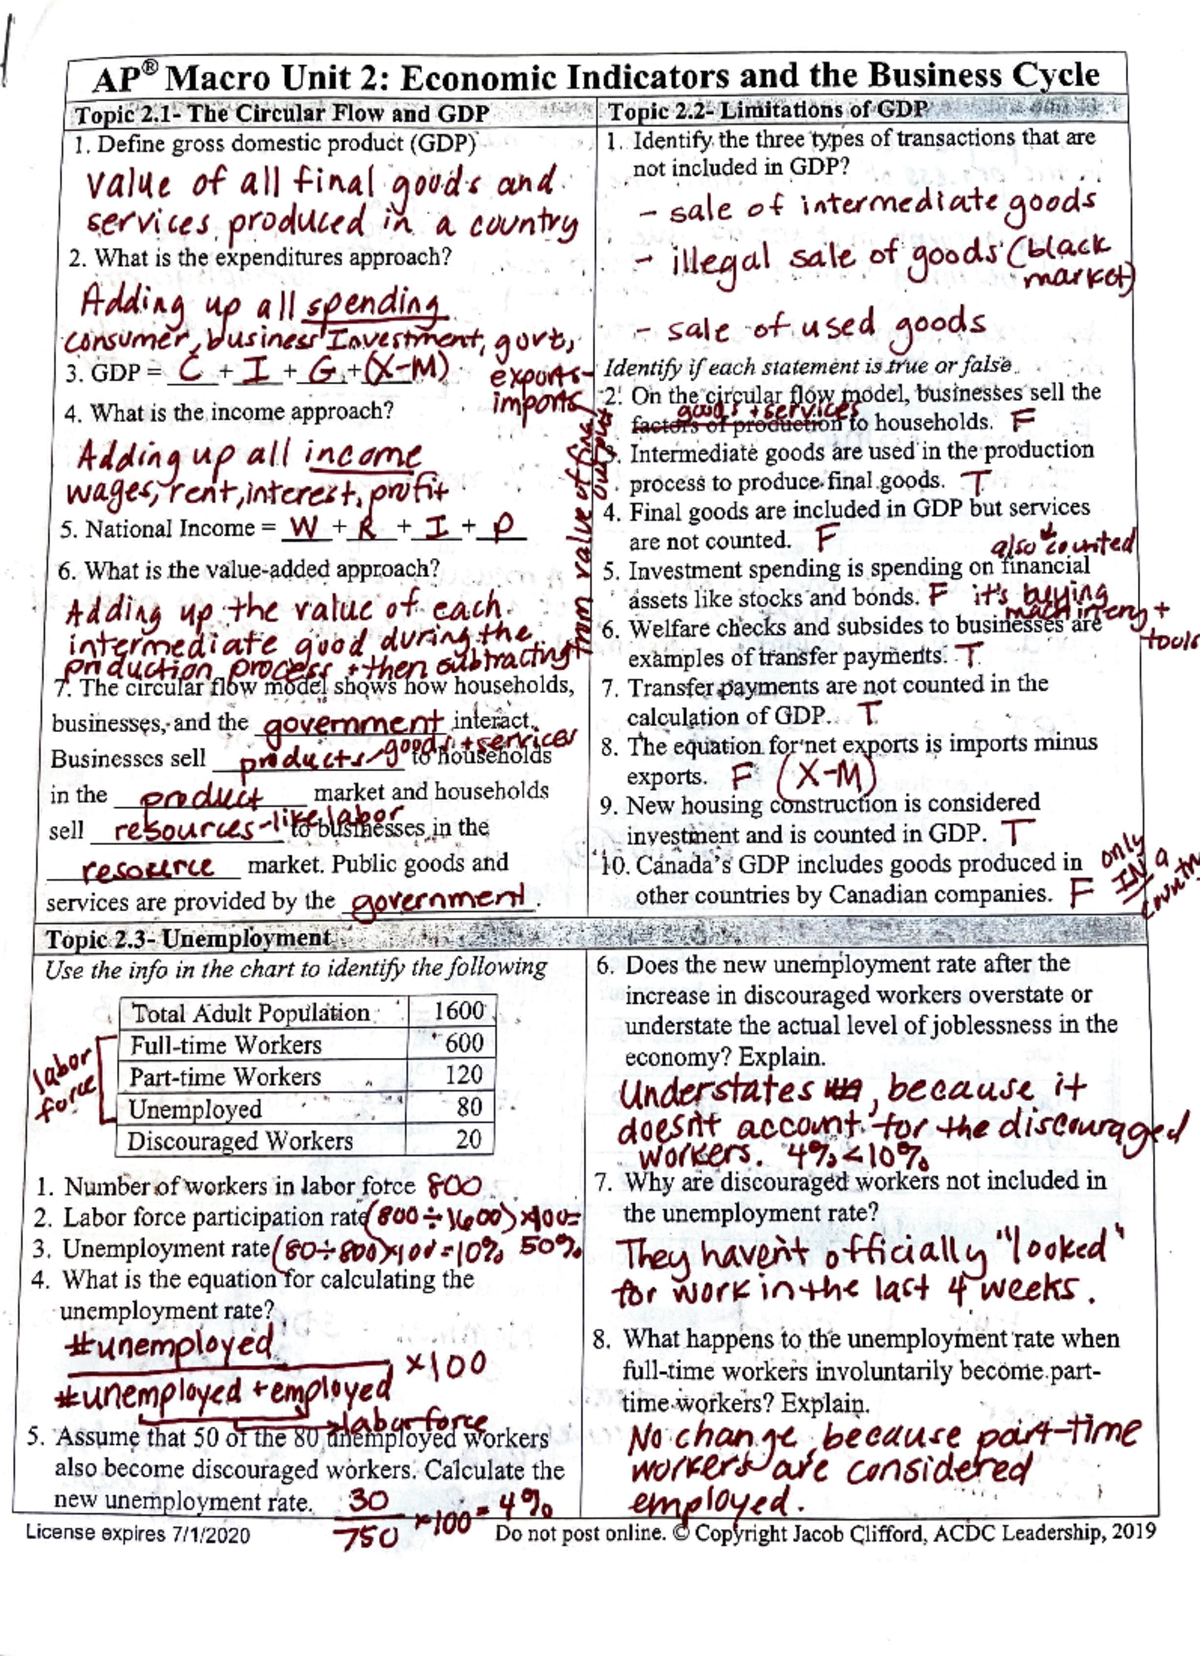 AP® Macro Unit 2: Economic Indicators and the Business Cycle
Topic 2.1- The Circular Flow and GDP
1. Define gross domestic product (GDP)
value of all final goods and
services produced in a country
2. What is the expenditures approach?
Adding up all spending
consumer, business Investment, govt,
exports-
imports
3. GDP = C + I + G + (X-M)
4. What is the income approach?
Adding up all income
wages, rent, interest, profit
5. National Income = W + R + I + P
6. What is the value-added approach?
Adding up the value of each
intermediate good during the
production process + then subtracting
value of
output
7. The circular flow model shows how households,
businesses, and the government interact.
Businesses sell products/goods + services to households
in the product market and households
sell resources-like labor to businesses in the
resource market. Public goods and
services are provided by the government.
Topic 2.2- Limitations of GDP
1. Identify the three types of transactions that are
not included in GDP?
- sale of intermediate goods
- illegal sale of goods (black
market)
- sale of used goods
Identify if each statement is true or false.
2. On the circular flow model, businesses sell the
goods + services
factors of production to households. F
3. Intermediate goods are used in the production
process to produce final goods. T
4. Final goods are included in GDP but services
are not counted. F
also counted
5. Investment spending is spending on financial
assets like stocks and bonds. F it's buying
machinery +
tools
6. Welfare checks and subsides to businesses are
examples of transfer payments. T
7. Transfer payments are not counted in the
calculation of GDP. T
8. The equation for net exports is imports minus
exports. F (X-M)
9. New housing construction is considered
investment and is counted in GDP. T
10. Canada's GDP includes goods produced in
other countries by Canadian companies. F
only
IN a
country
Topic 2.3- Unemployment
Use the info in the chart to identify the following
Total Adult Population 1600
Full-time Workers 600
Part-time Workers 120
Unemployed 80
Discouraged Workers 20
labor
force
1. Number of workers in labor force 800
2. Labor force participation rate (800÷1600)×100=
50%
3. Unemployment rate (80÷800)×100=10%
4. What is the equation for calculating the
unemployment rate?
#unemployed
#unemployed + employed
×100
labor force
5. Assume that 50 of the 80 unemployed workers
also become discouraged workers. Calculate the
new unemployment rate. 30
750
×100 = 4%
6. Does the new unemployment rate after the
increase in discouraged workers overstate or
understate the actual level of joblessness in the
economy? Explain.
Understates, because it
doesn't account for the discouraged
workers. 4% < 10%
7. Why are discouraged workers not included in
the unemployment rate?
They haven't officially "looked"
for work in the last 4 weeks.
8. What happens to the unemployment rate when
full-time workers involuntarily become part-
time workers? Explain.
No change, because part-time
workers are considered
employed.
License expires 7/1/2020
Do not post online. © Copyright Jacob Clifford, ACDC Leadership, 2019